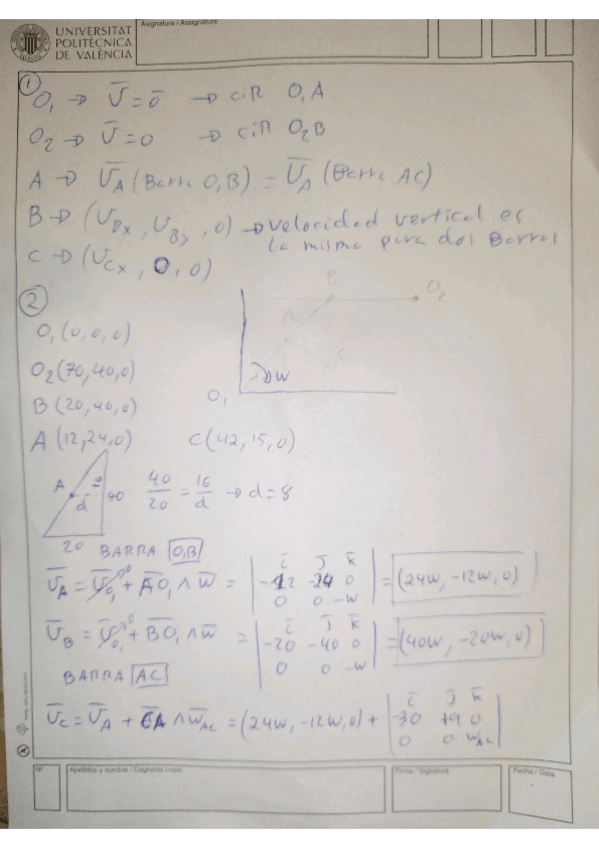 UNIVERSITAT
POLITÈCNICA
DE VALÈNCIA
Asignatura / Assignatura
①
O₁ → V̄ = 0̄ → CiR O₁A
O₂ → V̄ = 0 → CiR O₂B
A → V̄_A (Barra O₁B) = V̄_A (Barra AC)
B → (V_Bx, V_By, 0) → Velocidad vertical es
la misma para dos Barras
C → (V_Cx, 0, 0)
②
O₁ (0,0,0)
O₂ (70,40,0)
B (20,40,0)
A (12,24,0) C (42,15,0)
B O₂
A
C
W
O₁
A d 40
20
40/20 = 16/d → d = 8
BARRA O₁B
V̄_A = V̄_O₁ + ĀO₁ ∧ w̄ = | ī j̄ k̄ ; -12 -24 0 ; 0 0 -w | = (24w, -12w, 0)
V̄_B = V̄_O₁ + B̄O₁ ∧ w̄ = | ī j̄ k̄ ; -20 -40 0 ; 0 0 -w | = (40w, -20w, 0)
BARRA AC
V̄_C = V̄_A + C̄A ∧ w̄_AC = (24w, -12w, 0) + | ī j̄ k̄ ; -30 +9 0 ; 0 0 w_AC |
Nº
Apellidos y nombre / Cognoms i nom
Firma / Signatura
Fecha / Data